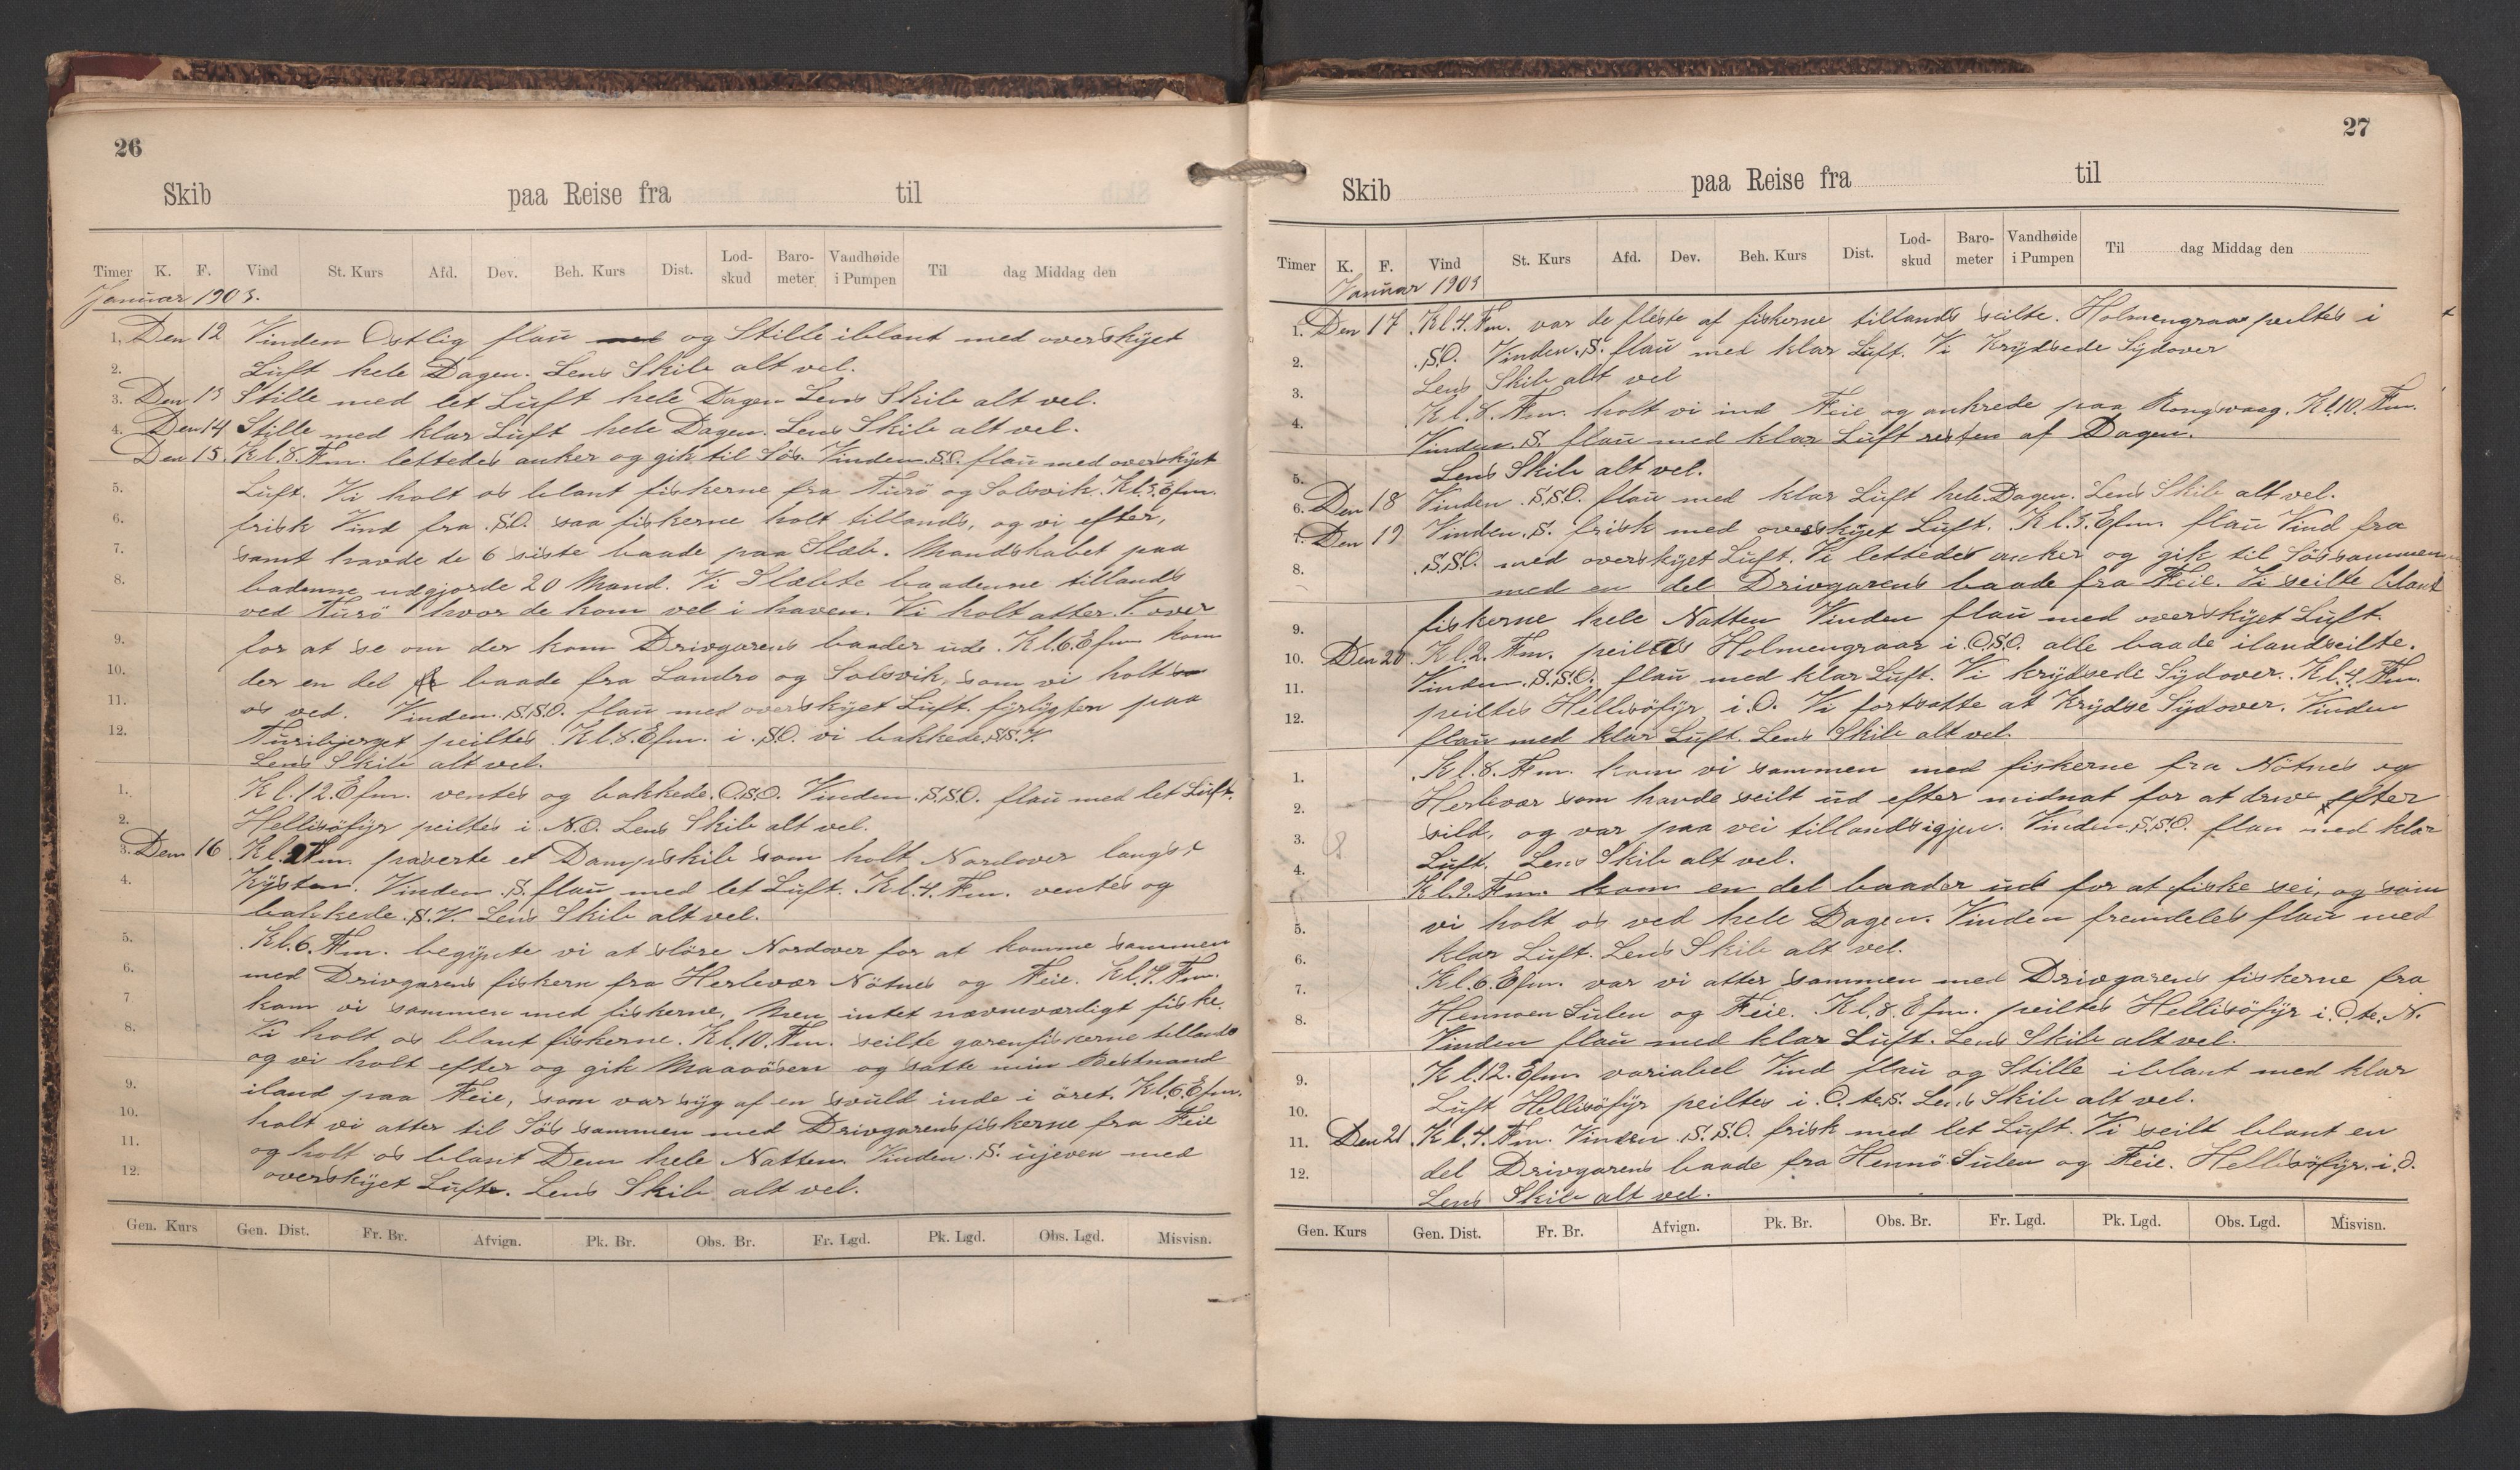 26
Skib paa Reise fra til
Timer K. F. Vind St. Kurs Afd. Dev. Beh. Kurs Dist. Lod-skud Baro-meter Vandhøide i Pumpen Til dag Middag den
Januar 1903.
1. Den 12 Vinden Ostlig flau med og Stille iblant med overskyet
2. Luft hele Dagen. Lens Skib alt vel.
3. Den 13 Stille med let Luft hele Dagen Lens Skib alt vel.
4. Den 14 Stille med klar Luft hele Dagen. Lens Skib alt vel.
Den 15. Kl. 8. Fm. lettedes anker og gik til Søs. Vinden. S.O. flau med overskyet
5. Luft. Vi holt os blant fiskerne fra Turö og Solsvik. Kl. 3. Efm.
6. frisk Vind fra S.O. saa fiskerne holt tillands, og vi efter,
7. samt havde de 6 siste baade paa Slæb. Mandskabet paa
8. badenne udgjorde 20 Mand. Vi Slæbte baadenne tillands
ved Turö hvor de kom vel i haven. Vi holt atter V. over
9. for at se om der kom Drivgarens baader ude. Kl. 6. Efm kom
10. der en del baade fra Landro og Solsvik, som vi holt
11. os ved. Vinden. S.S.O. flau med overskyet Luft. fyrlygten paa
12. Turibjerget peiltes Kl. 8. Efm. i S.O. vi bakkede S.S.V.
Lens Skib alt vel.
1. Kl. 12. Efm. ventes og bakkede. O.S.O. Vinden. S.S.O. flau med let Luft.
2. Hellisöfyr peiltes i N.O. Lens Skib alt vel.
3. Den 16 Kl. 2 Fm. praverte et Dampskib som holt Nordover langst
4. Kysten. Vinden. S. flau med let Luft. Kl. 4. Fm. ventes og
bakkede. S.V. Lens Skib alt vel.
5. Kl. 6. Fm. begynte vi at slöre Nordover for at komme sammen
6. med Drivgarens fiskern fra Herlevær Nötnes og Feie. Kl. 7. Fm.
7 kom vi sammen med fiskerne. Men intet nævneværdigt fiske.
8. Vi holt os blant fiskerne. Kl. 10. Fm. seilte garenfiskerne tillands
og vi holt efter og gik Maaoösen og satte min Bestmand
9. iland paa Feie, som var syg af en svuld inde i öret. Kl. 6. Efm.
10. holt vi atter til SöS sammen med Drivgarensfiskerne fra Feie
11. og holt os blant Dem hele Natten. Vinden. S. ujeven med
12. overskyet Luft. Lens Skib alt vel.
Gen. Kurs Gen. Dist. Fr. Br. Afvign. Pk. Br. Obs. Br. Fr. Lgd. Pk. Lgd. Obs. Lgd. Misvisn.
27
Skib paa Reise fra til
Timer K. F. Vind St. Kurs Afd. Dev. Beh. Kurs Dist. Lod-skud Baro-meter Vandhøide i Pumpen Til dag Middag den
Januar 1903
1. Den 17. Kl. 4. Fm. var de fleste af fiskerne tillands seilte. Holmengraa peiltes i
2. S.O. Vinden. S. flau med klar Luft. Vi Krydsede Sydover
3. Lens Skib alt vel
4. Kl. 8. Fm. holt vi ind Feie og ankrede paa Rongsvaag. Kl. 10. Fm.
Vinden. S. flau med klar Luft resten af Dagen.
5. Lens Skib alt vel.
6. Den 18 Vinden. S.S.O. flau med klar Luft hele Dagen. Lens Skib alt vel.
7. Den 19 Vinden. S. frisk med overskyet Luft. Kl. 3. Efm. flau Vind fra
8. S.S.O. med overskyet Luft. Vi lettedes anker og gik til Sössammen
med en del Drivgarens baade fra Feie. Vi seilte blant
9. fiskerne hele Natten Vinden flau med overskyet Luft.
10. Den 20. Kl. 2. Fm. peiltes Holmengraar i O.S.O. alle baade ilandseilte.
11. Vinden. S.S.O. flau med klar Luft. Vi krydsede Sydover. Kl. 4. Fm.
12. peiltes Hellisöfyr i. O. Vi fortsatte at Krydse Sydover. Vinden
flau med klar Luft. Lens Skib alt vel.
1. Kl. 8. Fm. kom vi sammen med fiskerne fra Nötnes og
2. Herlevær som havde seilt ud efter midnat for at drive efter
3. sild, og var paa vei tillandsigjen. Vinden. S.S.O. flau med klar
4. Luft. Lens Skib alt vel.
Kl. 9. Fm. kom en del baader ud for at fiske sei, og som
5. vi holt os ved hele Dagen. Vinden fremdeles flau med
6. klar Luft. Lens Skib alt vel.
7. Kl. 6. Efm. var vi atter sammen med Drivgarens fiskerne fra
8. Hennoen Sulen og Feie. Kl. 8. Efm. peiltes Hellisöfyr i. O. te. N.
Vinden flau med klar Luft. Lens Skib alt vel.
9. Kl. 12. Efm. variabel Vind flau og Stille iblant med klar
10. Luft Hellisöfyr peiltes i. O. te. S. Lens Skib alt vel.
11. Den 21. Kl. 4. Fm. Vinden. S.S.O. frisk med let Luft. Vi seilt blant en
12. del Drivgarens baade fra Hennö Sulen og Feie. Hellisöfyr. i. O.
Lens Skib alt vel.
Gen. Kurs Gen. Dist. Fr. Br. Afvign. Pk. Br. Obs. Br. Fr. Lgd. Pk. Lgd. Obs. Lgd. Misvisn.